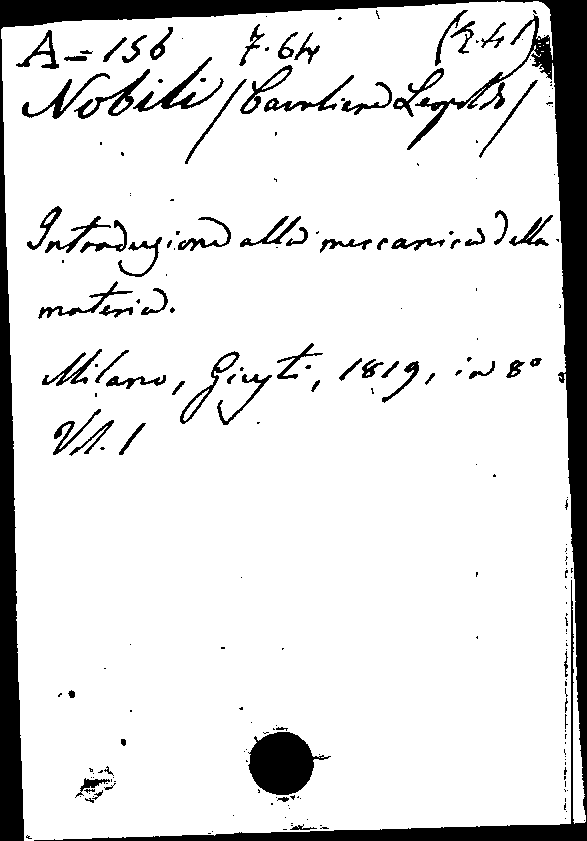 A=156 7.64 (2.41)
Nobili (Cavaliere Leopoldo)
Introduzione alla meccanica della
materia.
Milano, Giusti, 1819, in 8°
Vol. 1